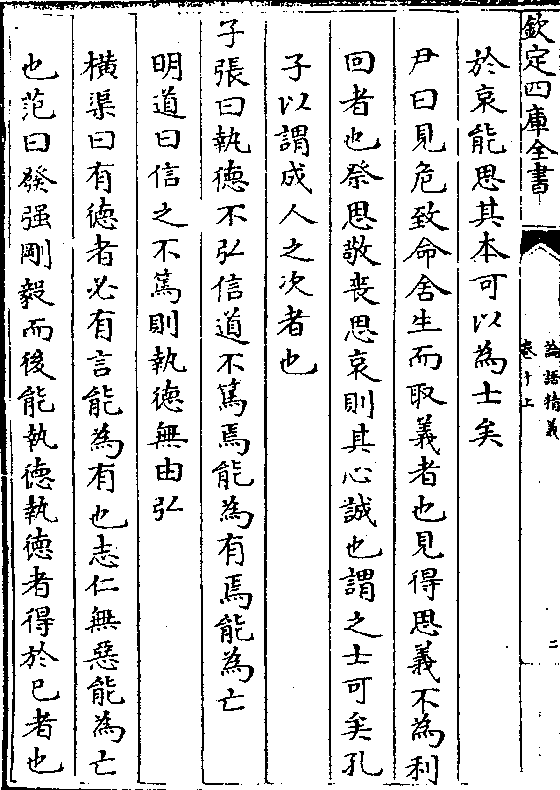 欽定四庫全書
論語精義
卷十上
二
於哀能思其本可以為士矣
尹曰見危致命舍生而取義者也見得思義不為利
回者也祭思敬喪思哀則其心誠也謂之士可矣孔
子以謂成人之次者也
子張曰執德不弘信道不篤焉能為有焉能為亡
明道曰信之不篤則執德無由弘
橫渠曰有德者必有言能為有也志仁無惡能為亡
也范曰發强剛毅而後能執德執德者得於已者也